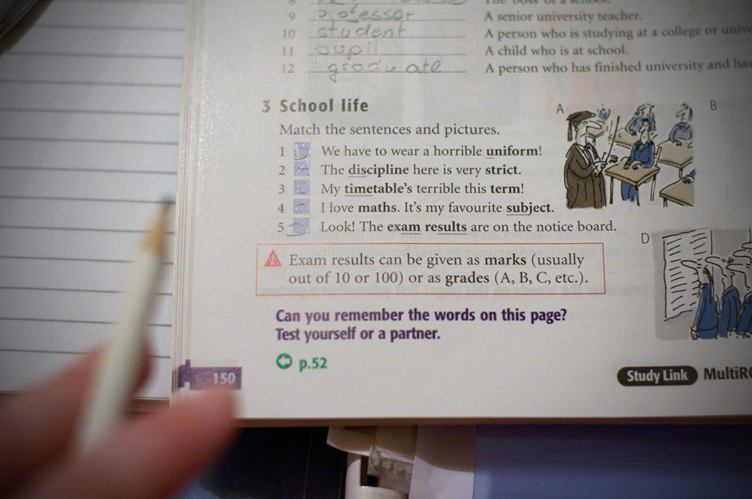 9 professor A senior university teacher.
10 student A person who is studying at a college or
11 pupil A child who is at school.
12 graduate A person who has finished university and has
3 School life
A B
Match the sentences and pictures.
1 We have to wear a horrible uniform!
2 A The discipline here is very strict.
3 E My timetable's terrible this term!
4 C I love maths. It's my favourite subject.
5 D Look! The exam results are on the notice board.
D
Exam results can be given as marks (usually
out of 10 or 100) or as grades (A, B, C, etc.).
Can you remember the words on this page?
Test yourself or a partner.
p.52
150
Study Link